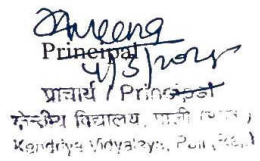 Ameena
Principal
4/3/2025
प्राचार्य / Principal
केन्द्रीय विद्यालय, पाली (राज.)
Kendriya Vidyalaya, Pali (Raj.)